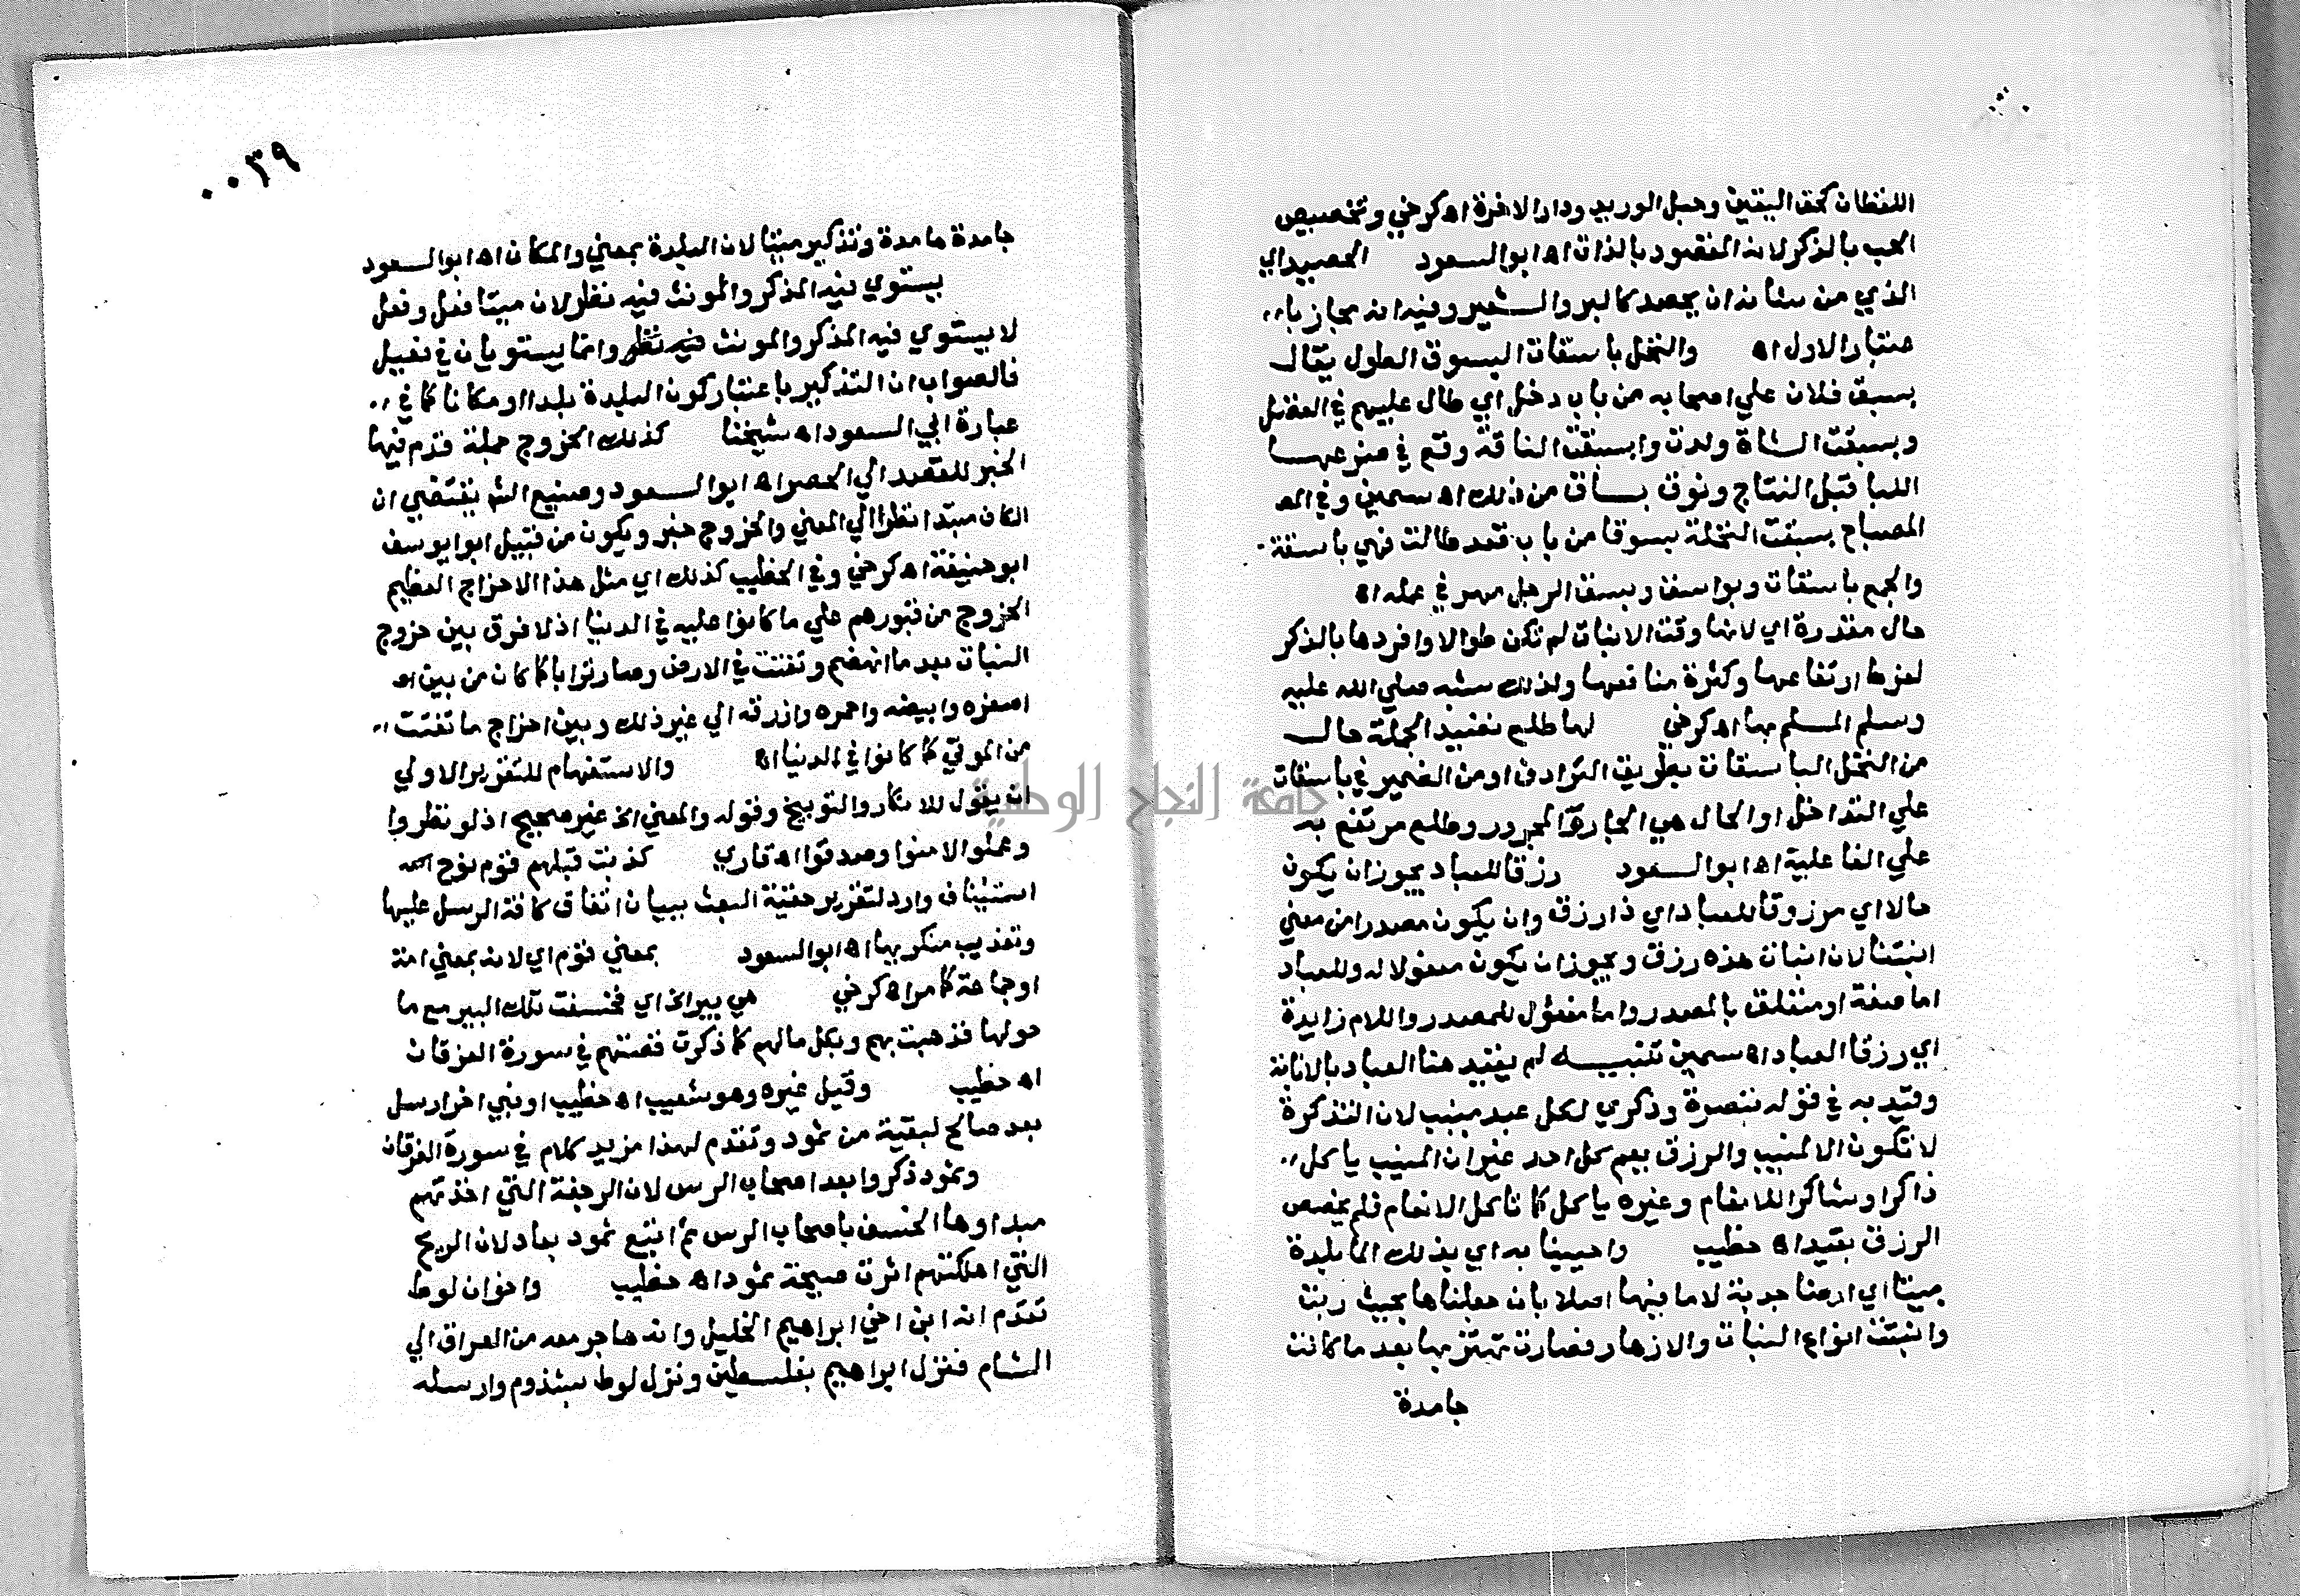 اللفظان كحق اليقين وحبل الوريد ودار الاخرة اه كرخي وتخصيص
الحب بالذكر لانه المقصود بالذات اه ابو السعود الحصيد اي
الذي من شانه ان يحصد كالبر والشعير وفيه انه مجاز با
عتبار الاول اه والنخل باسقات البسوق الطول يقال
بسق فلان علي اصحابه من باب دخل اي طال عليهم في الفضل
وبسقت الشاة ولدت وابسقت الناقة وقع في ضرعها
اللبا قبل النتاج ونوق بساق من ذلك اه سمين وفي المص
المصباح بسقت النخلة بسوقا من باب قعد طالت فهي باسقة
والجمع باسقات وبواسق وبسق الرجل مهر في عمله اه
حال مقدرة اي لانها وقت الانبات لم تكن طوالا وافردها بالذكر
لفرط ارتفاعها وكثرة منافعها ولذلك شبه صلي الله عليه
وسلم المسلم بها اه كرخي لها طلع نضيد الجملة حال
من النخل الباسقات بطريق الترادف او من الضمير في باسقات
علي التداخل او الحال هي الجار والمجرور وطلع مرتفع به
علي الفاعلية اه ابو السعود رزقا للعباد يجوز ان يكون
حالا اي مرزوقا للعباد اي ذا رزق وان يكون مصدرا من معني
انبتنا لان انبات هذه رزق ويجوز ان يكون مفعولا له وللعباد
اما صفة او متعلق بالمصدر واما مفعول للمصدر واللام زايدة
اي رزقا العباد اه سمين تنبيه لم يقيد هنا العباد بالانابة
وقيد به في قوله تبصرة وذكري لكل عبد منيب لان التذكرة
لا تكون الا لمنيب والرزق يعم كل احد غير ان المنيب ياكل
ذاكرا وشاكرا للانعام وغيره ياكل كما تاكل الانعام فلم يخصص
الرزق بقيد اه خطيب واحيينا به اي بذلك الما بلدة
ميتا اي ارضا جدبة لا ما فيها اصلا بان جعلناها بحيث ربت
وانبتت انواع النبات والازهار فصارت تهتز بها بعد ما كانت
جامدة
٠٠٣٩
جامدة هامدة وتذكير ميتا لان البلدة بمعني والمكان اه ابو السعود
يستوي فيه المذكر والمونث فيه نظر لان ميتا فعل وفعل
لا يستوي فيه المذكر والمونث فيه نظر وانما يستويان في فعيل
فالصواب ان التذكير باعتبار كون البلدة بلدا او مكانا كما في
عبارة ابي السعود اه شيخنا كذلك الخروج جملة قدم فيها
الخبر للقصد الي الحصر اه ابو السعود وصنيع الش يقتضي ان
الكاف مبتدا نظرا الي المعني والخروج خبر ويكون من قبيل ابو ايوسف
ابو حنيفة اه كرخي وفي الخطيب كذلك اي مثل هذا الاخراج العظيم
الخروج من قبورهم علي ما كانوا عليه في الدنيا اذ لا فرق بين خروج
النبات بعد ما انهضم وتفتت في الارض وصار ترابا كما كان من بين اص
اصفره وابيضه واحمره وازرقه الي غير ذلك وبين اخراج ما تفتت
من الموتي كما كانوا في الدنيا اه والاستفهام للتقرير الاولي
ان يقول للانكار والتوبيخ وقوله والمعني الخ غير صحيح اذ لو نظروا
وعملوا لامنوا وصدقوا اه قاري كذبت قبلهم قوم نوح الخ
استيناف وارد لتقرير حقية البعث ببيان اتفاق كافة الرسل عليها
وتعذيب منكريها اه ابو السعود بمعني قوم اي لانه بمعني امة
او جماعة كما مر اه كرخي هي بير الخ اي فخسفت تلك البير مع ما
حولها فذهبت بهم وبكل مالهم كما ذكرت قصتهم في سورة الفرقان
اه خطيب وقيل غيره وهو شعيب اه خطيب او نبي اخر ارسل
بعد صالح لبقية من ثمود وتقدم لهذا مزيد كلام في سورة الفرقان
وثمود ذكروا بعد اصحاب الرس لان الرجفة التي اخذتهم
مبداوها الخسف باصحاب الرس ثم اتبع ثمود بعاد لان الريح
التي اهلكتهم اثرت صيحة ثمود اه خطيب واخوان لوط
تقدم انه ابن اخي ابراهيم الخليل وانه هاجر معه من العراق الي
الشام فنزل ابراهيم بفلسطين ونزل لوط بسذوم وارسله
جامعة النجاح الوطنية